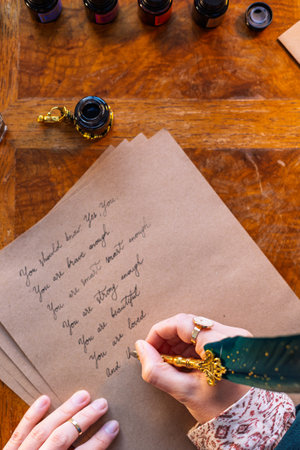 You should know Yes, You
You are brave enough
You are smart smart enough
You are strong enough
You are beautiful
You are loved
And